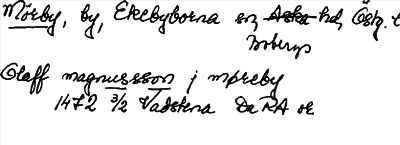 Mörby, by, Ekebyborna sn, Aska hd, Östg. l
Bobergs
Olaff magnusson j møreby
1472 3/2 Vadstena Da RA or